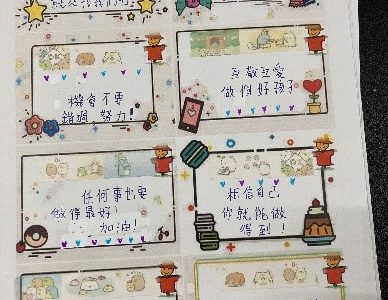 互敬互愛
做個好孩子
機會不要
錯過 努力!
任何事也要
做得最好!
加油!
相信自己
你就能做
得到!